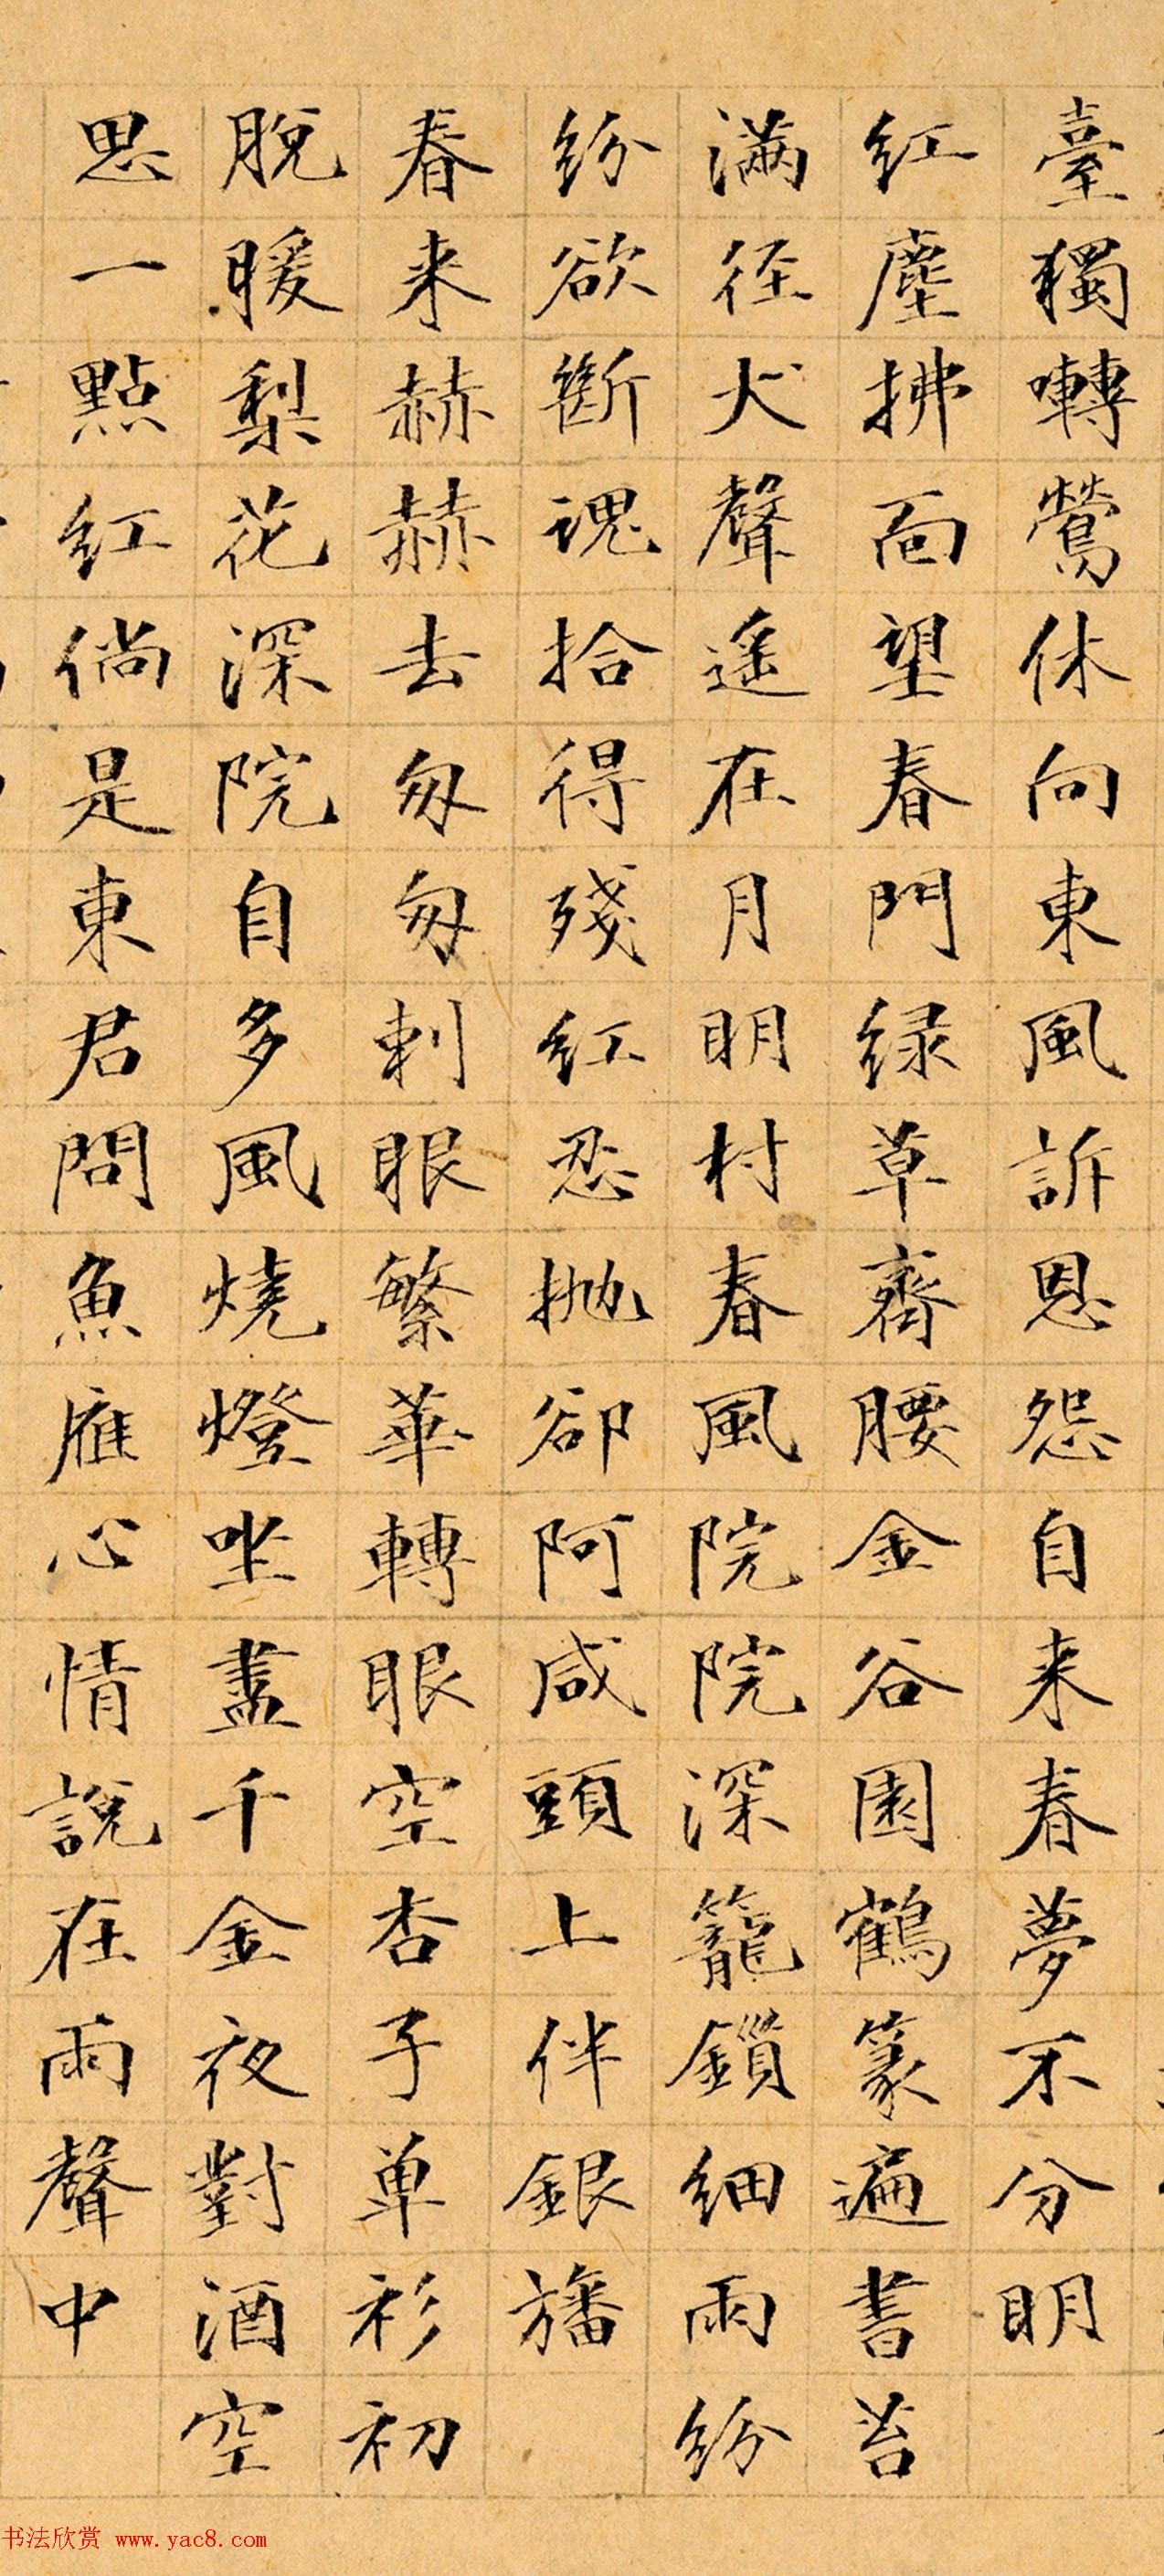 臺獨囀鶯休向東風訴恩怨自来春夢不分明
红塵拂面望春門绿草齊腰金谷園鶴篆遍書苔
满径犬聲遥在月明村春風院院深籠鎖细雨纷
纷欲斷魂拾得殘红忍抛卻阿咸頭上伴銀旛
春来赫赫去匆匆刺眼繁華轉眼空杏子单衫初
脱暖梨花深院自多風燒燈坐盡千金夜對酒空
思一點红倘是東君問魚雁心情説在雨聲中
书法欣赏 www.yac8.com